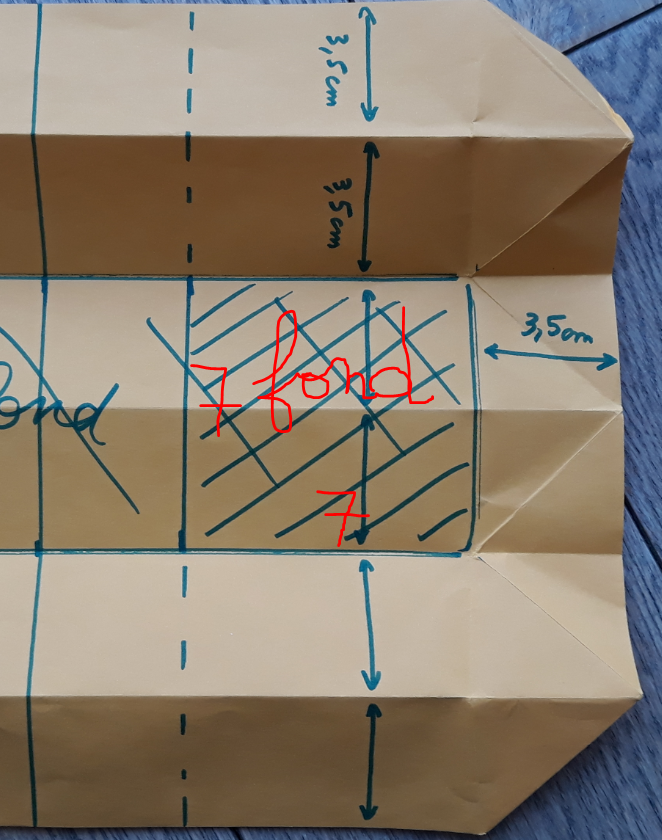 3,5cm
3,5cm
3,5cm
7 fond
fond
7